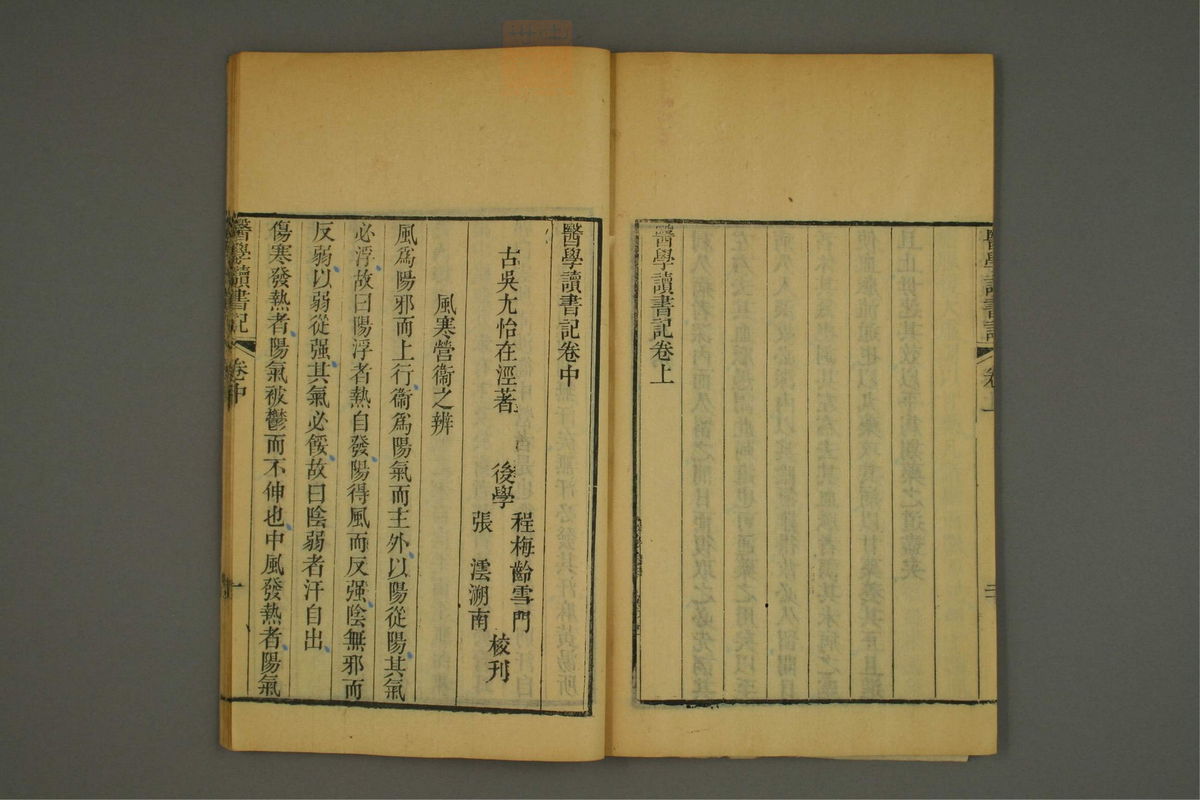 醫學讀書記
卷上
醫學讀書記卷上
醫學讀書記卷中
古吳尤怡在涇著
後學
程梅齡雪門
張　澐溯南
校刊
風寒營衞之辨
風爲陽邪而上行衞爲陽氣而主外以陽從陽其氣
必浮故曰陽浮者熱自發陽得風而反强陰無邪而
反弱以弱從强其氣必餒故曰陰弱者汗自出
傷寒發熱者陽氣被鬱而不伸也中風發熱者陽氣
醫學讀書記
卷中
一